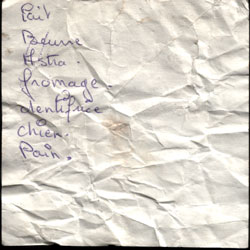 Lait
Beurre
Astra.
fromage
dentifrice
chien.
Pain.